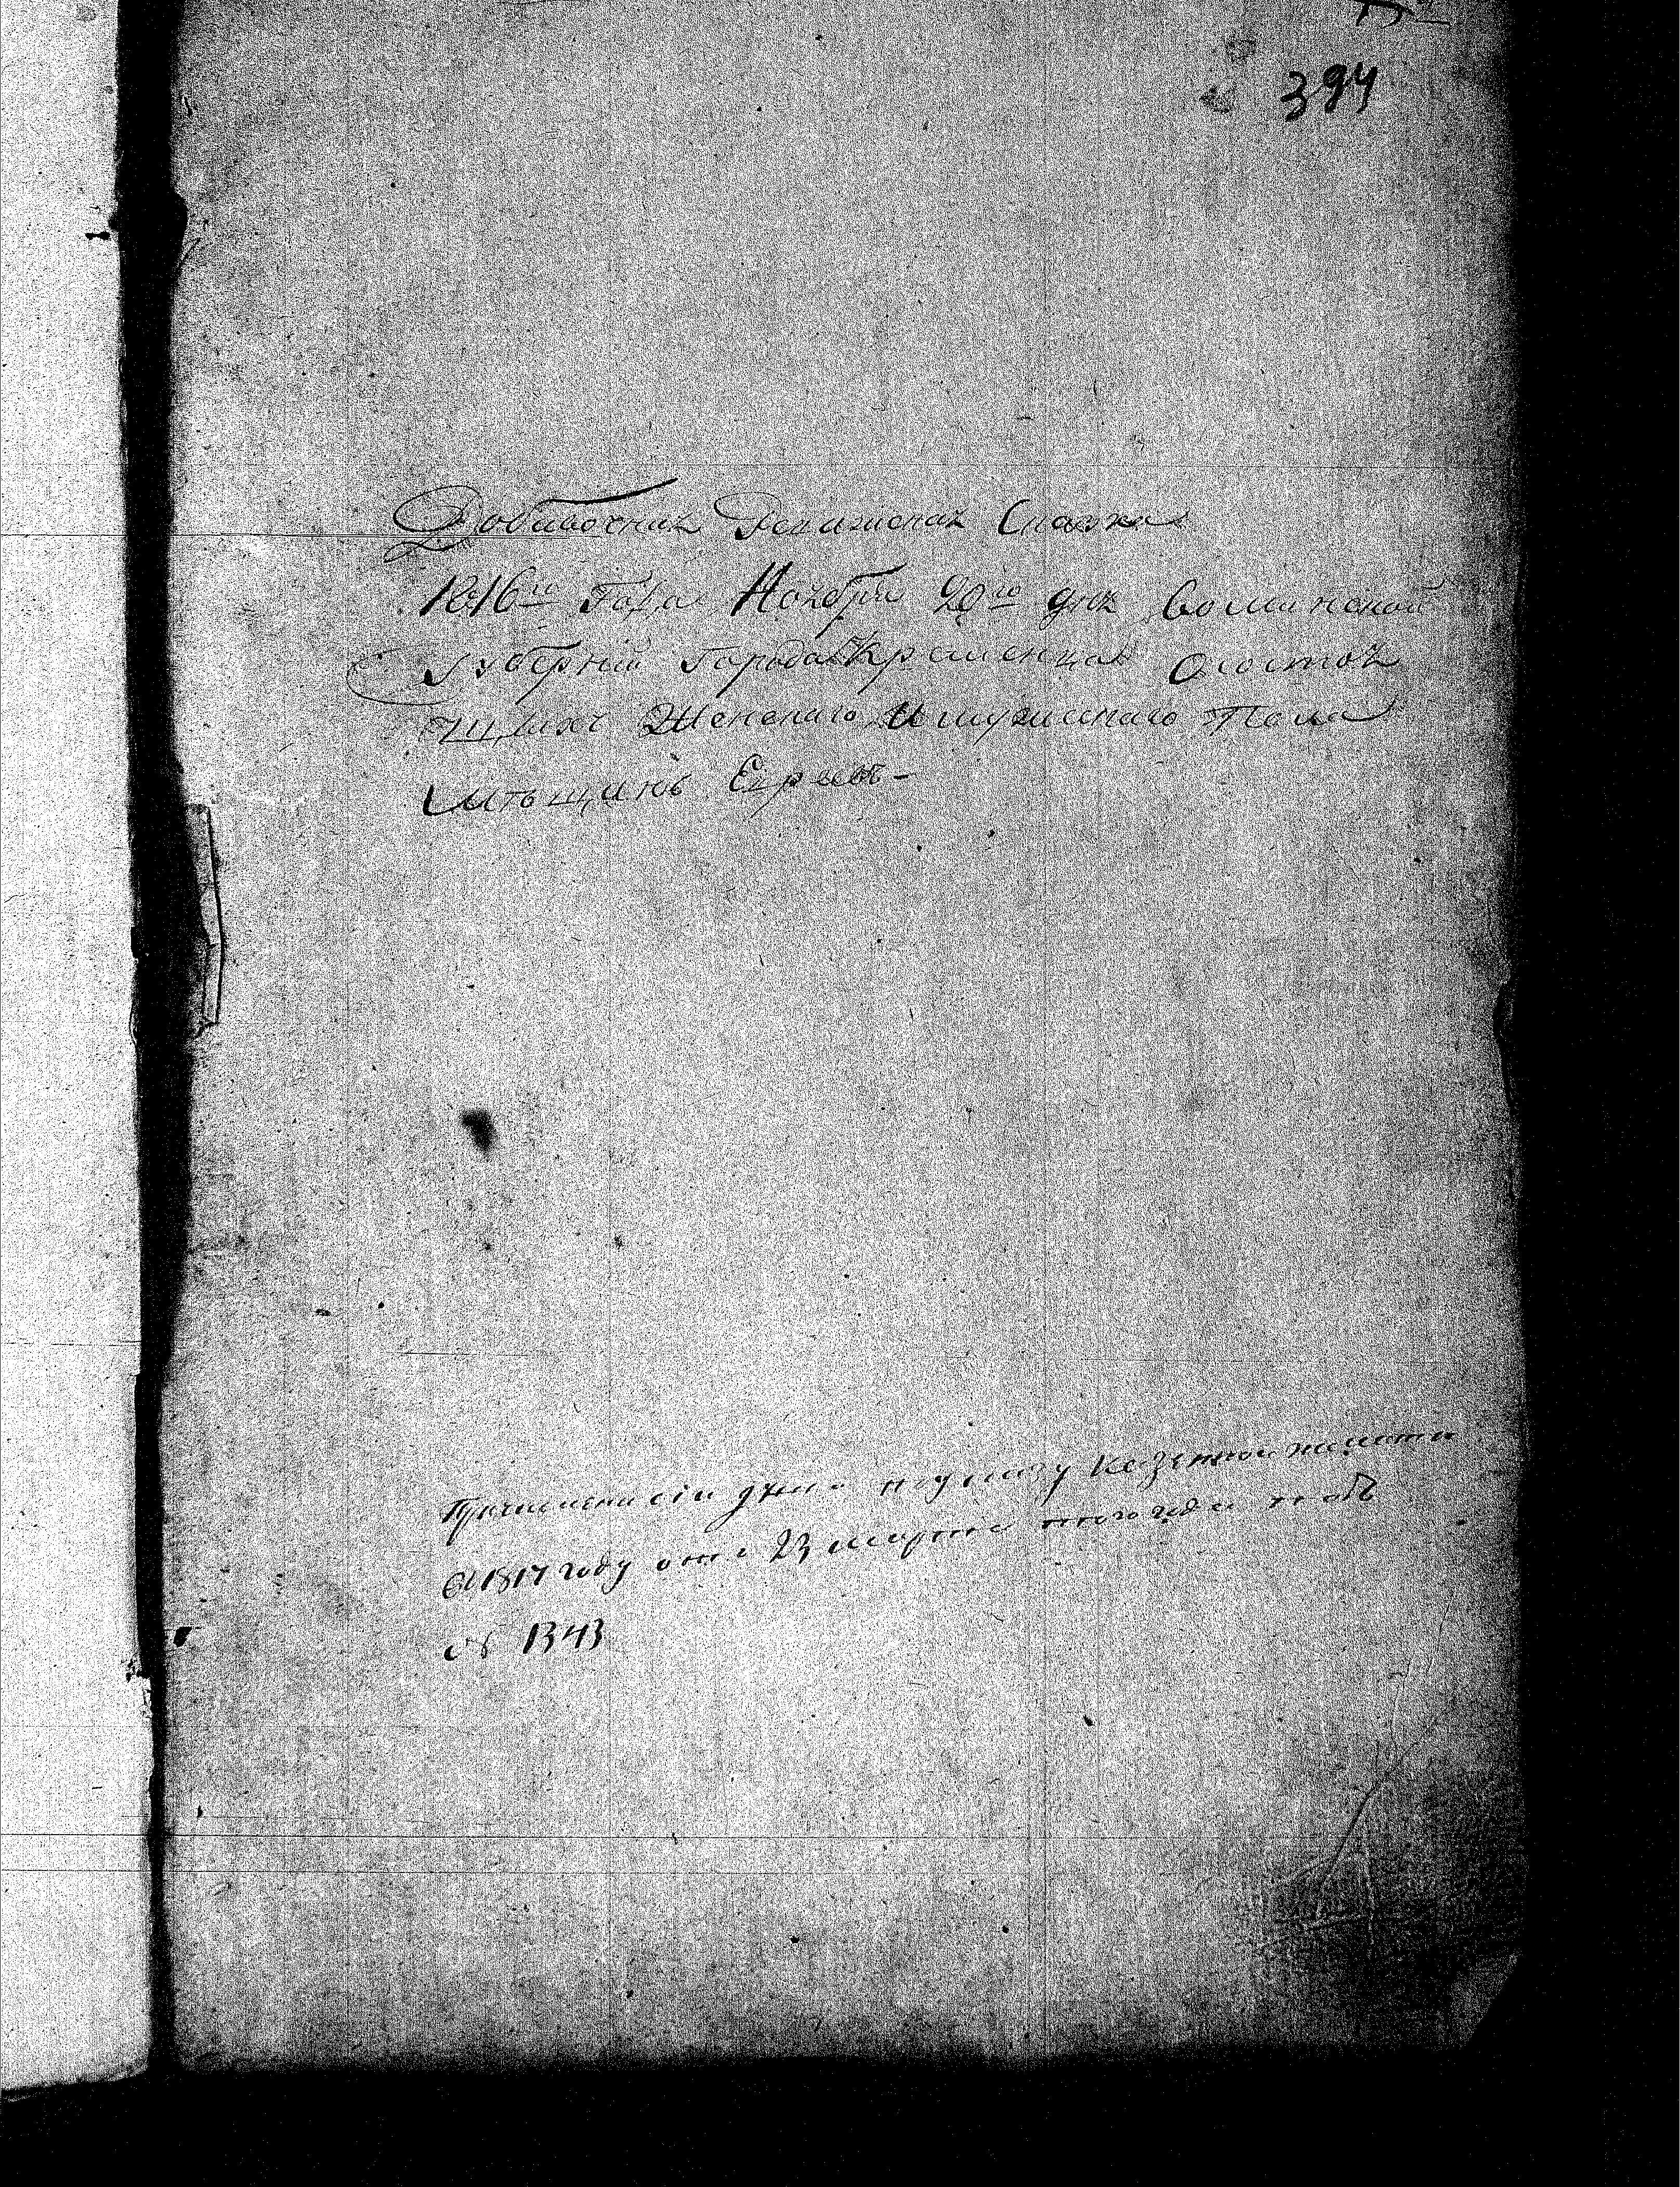 394
Добавочная Ревизская Сказка
1816го Года Ноября 20го дня Волинской
Губерній Города Кременца О состоя
щихъ Женскаго и мужескаго Пола
Мѣщинъ Евреевъ -
Причислени сіи души по указу Казенной палати
1817 году отъ 23 марта того года подъ
№ 1343